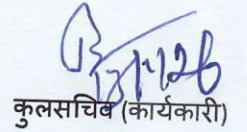 कुलसचिव (कार्यकारी)